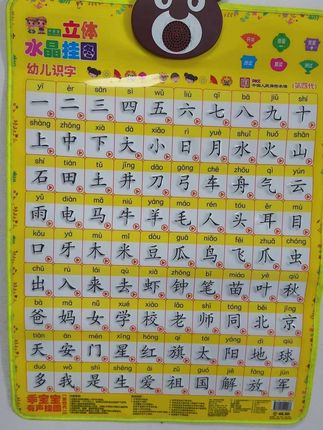 立体
水晶挂图
幼儿识字
(第四代)
yī èr sān sì wǔ liù qī bā jiǔ shí
一 二 三 四 五 六 七 八 九 十
shàng zhōng xià dà xiǎo rì yuè shuǐ huǒ shān
上 中 下 大 小 日 月 水 火 山
shí tián tǔ jǐng dāo gōng chē zhōu qì yún
石 田 土 井 刀 弓 车 舟 气 云
yǔ diàn mǎ niú yáng máo rén tóu ěr mù
雨 电 马 牛 羊 毛 人 头 耳 目
kǒu yá mù mǐ dòu guā niǎo fēi zhǎo chóng
口 牙 木 米 豆 瓜 鸟 飞 爪 虫
chū rù lái qù xiā zhōng bǐ miáo yè qiū
出 入 来 去 虾 钟 笔 苗 叶 秋
bà mā nǚ xué xiào lǎo shī tóng běi jīng
爸 妈 女 学 校 老 师 同 北 京
tiān ān mén xīng hóng qí tài yáng dì qiú
天 安 门 星 红 旗 太 阳 地 球
duō wǒ shì shēng ài zǔ guó jiě fàng jūn
多 我 是 生 爱 祖 国 解 放 军
乖宝宝
有声挂图